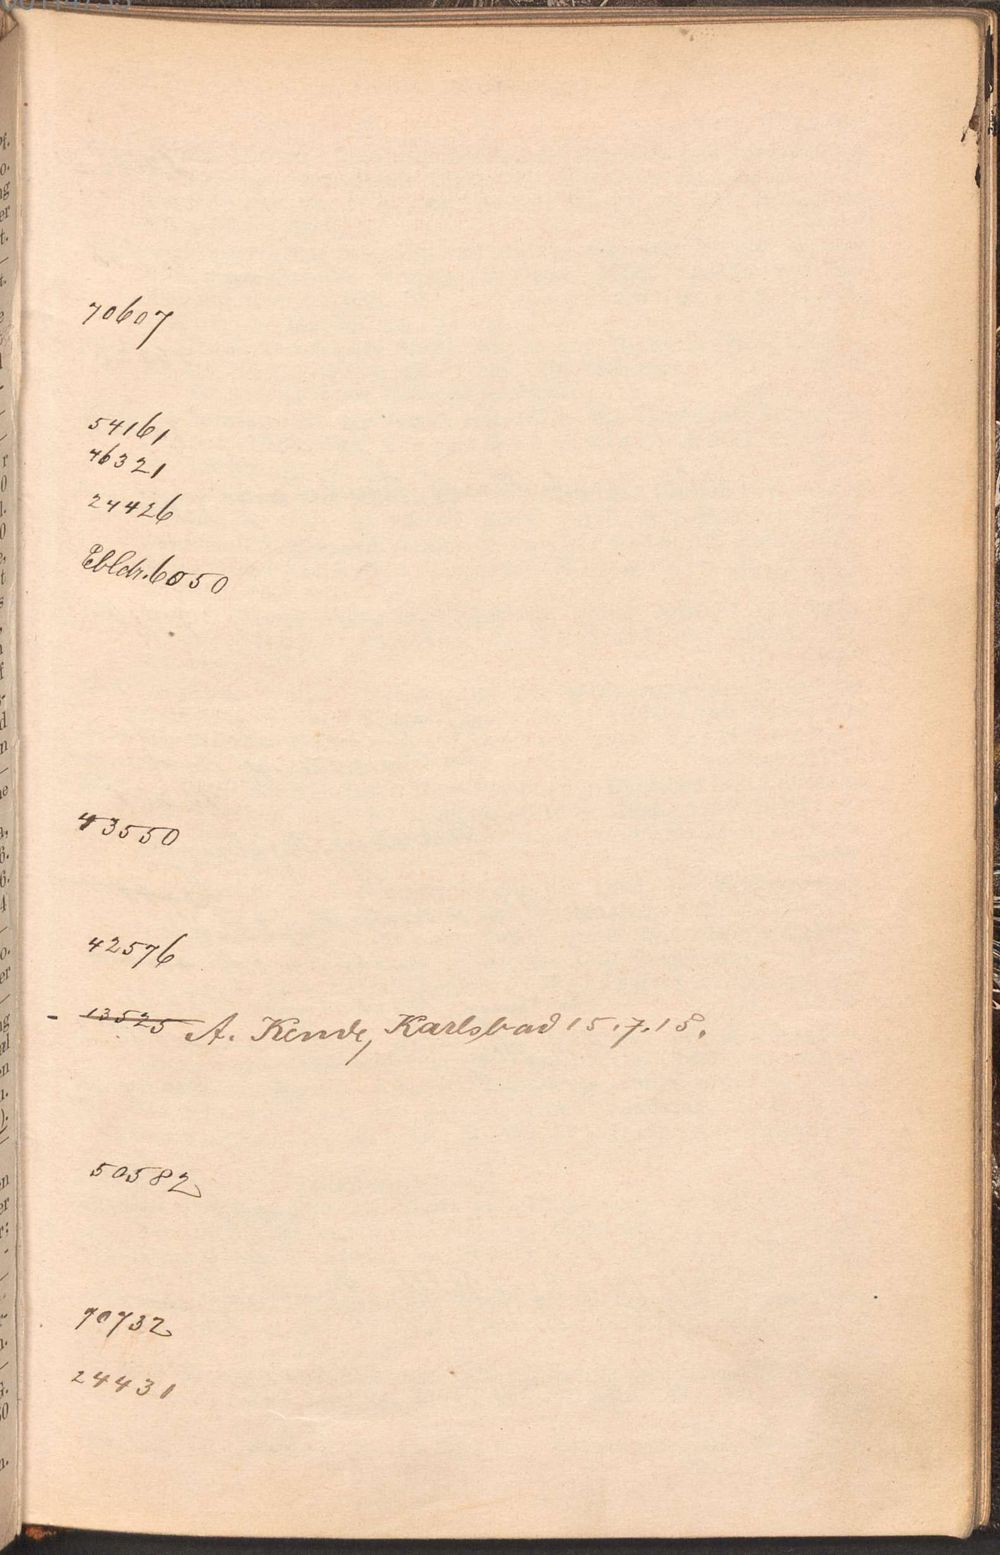 70607
54161
46321
24426
Ebldr. 6050
43550
42576
- 13525 A. Kende, Karlsbad 15.7.18.
50582
70732
24431